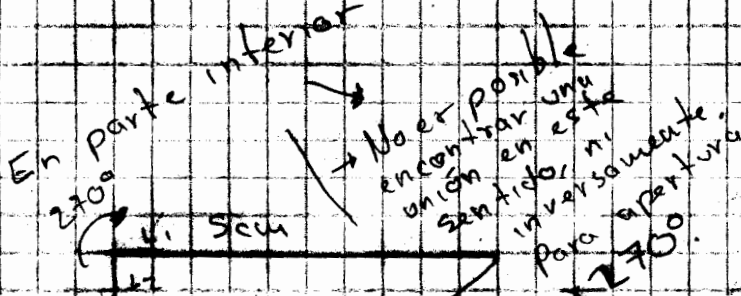 En parte interior
→ No es posible
encontrar una
unión en este
sentido, ni
inversamente.
para apertura
270°.
270°
5cm